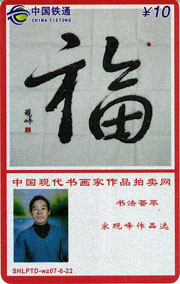 中国铁通
CHINA TIETONG
¥10
福
中国现代书画家作品拍卖网
书法荟萃
宋现峰作品选
SHLPTD-wz07-6-22